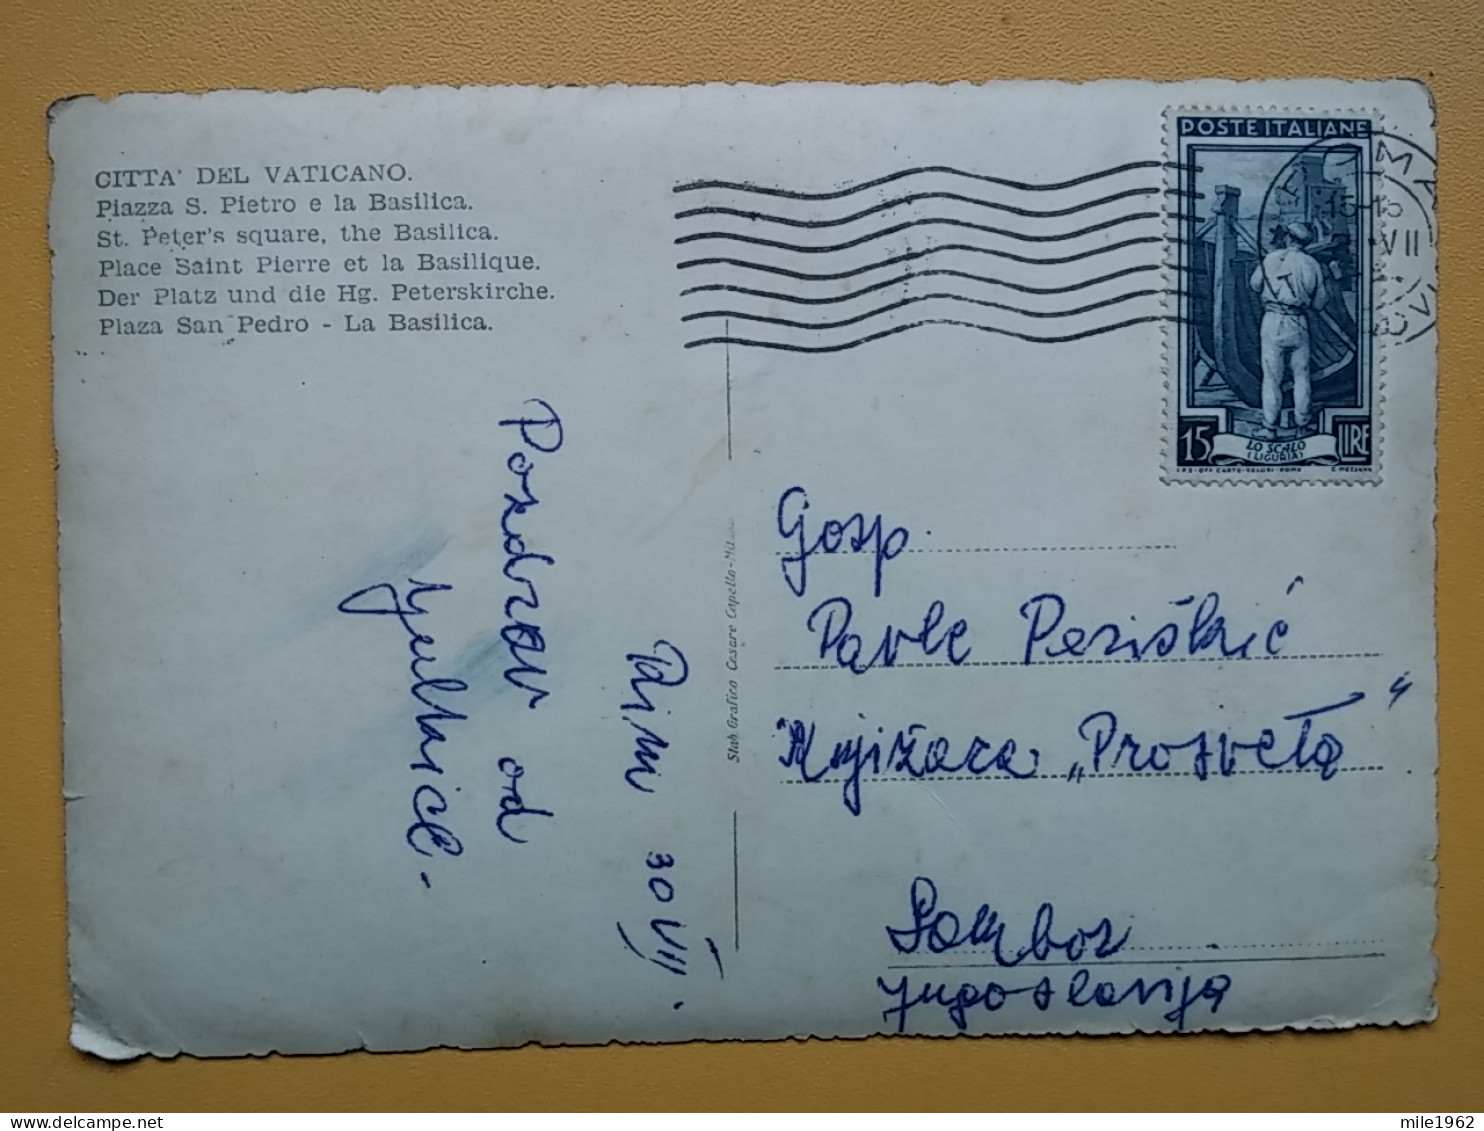 CITTA' DEL VATICANO.
Piazza S. Pietro e la Basilica.
St. Peter's square, the Basilica.
Place Saint Pierre et la Basilique.
Der Platz und die Hg. Peterskirche.
Plaza San Pedro - La Basilica.
POSTE ITALIANE
15-15
VII
15
LO SCALO
(LIGURIA)
LIRE
Rim 30 VII.
Pozdrav od
Stab. Grafico Cesare Capello-Milano
Gosp.
Pavle
Knjižara „Prosveta"
Sombor
Jugoslavija
mile1962